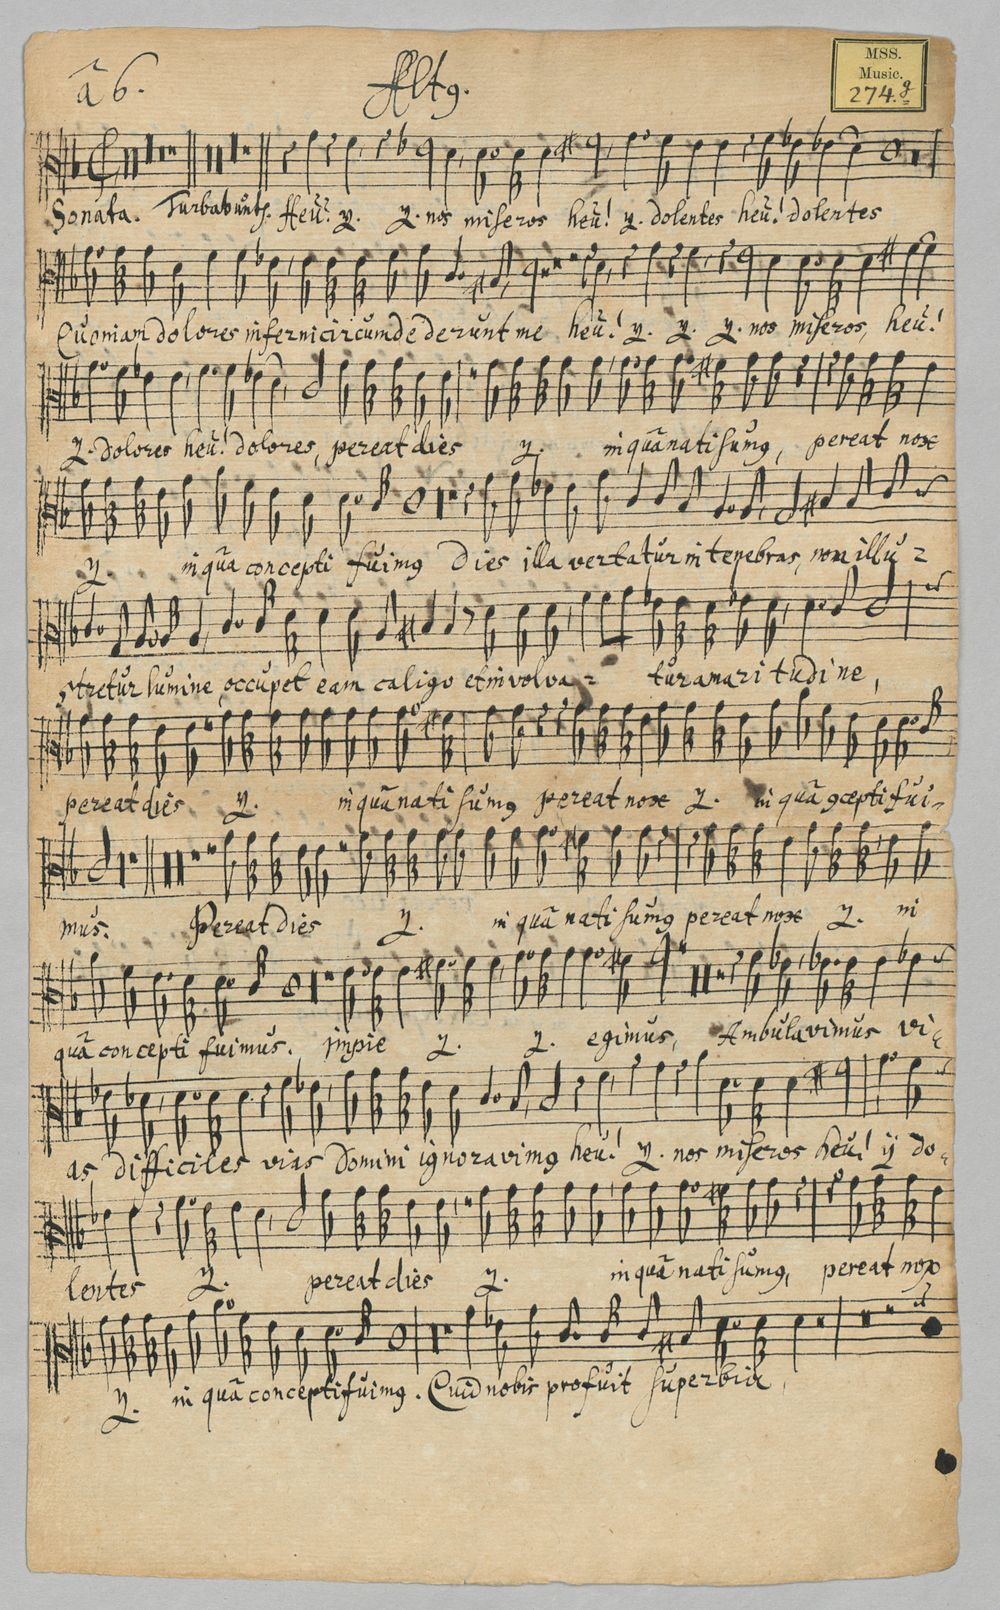 ã 6. Alt9.
MSS.
Music.
274.g
Sonata. Turbabunt. Heu! y. y. nos miseros heu! y. dolentes heu! dolentes
Quoniam dolores inferni circumdederunt me heu! y. y. y. nos miseros, heu!
y. dolores heu! dolores, pereat dies y. in quã nati sum9, pereat nox
y. in quã concepti fuim9 Dies illa vertatur in tenebras, non illu-
stretur lumine, occupet eam caligo et involva- tur amaritudine,
pereat dies y. in quã nati sum9 pereat nox y. in quã 9cepti fui-
mus. Pereat dies y. in quã nati sum9 pereat nox y. in
quã concepti fuimus. impie y. y. egimus, Ambulavimus vi-
as difficiles vias Domini ignoravim9 heu! y. nos miseros heu! ij do-
lentes y. pereat dies y. in quã nati sum9, pereat nox
y. in quã concepti fuim9. Quid nobis profuit superbia,